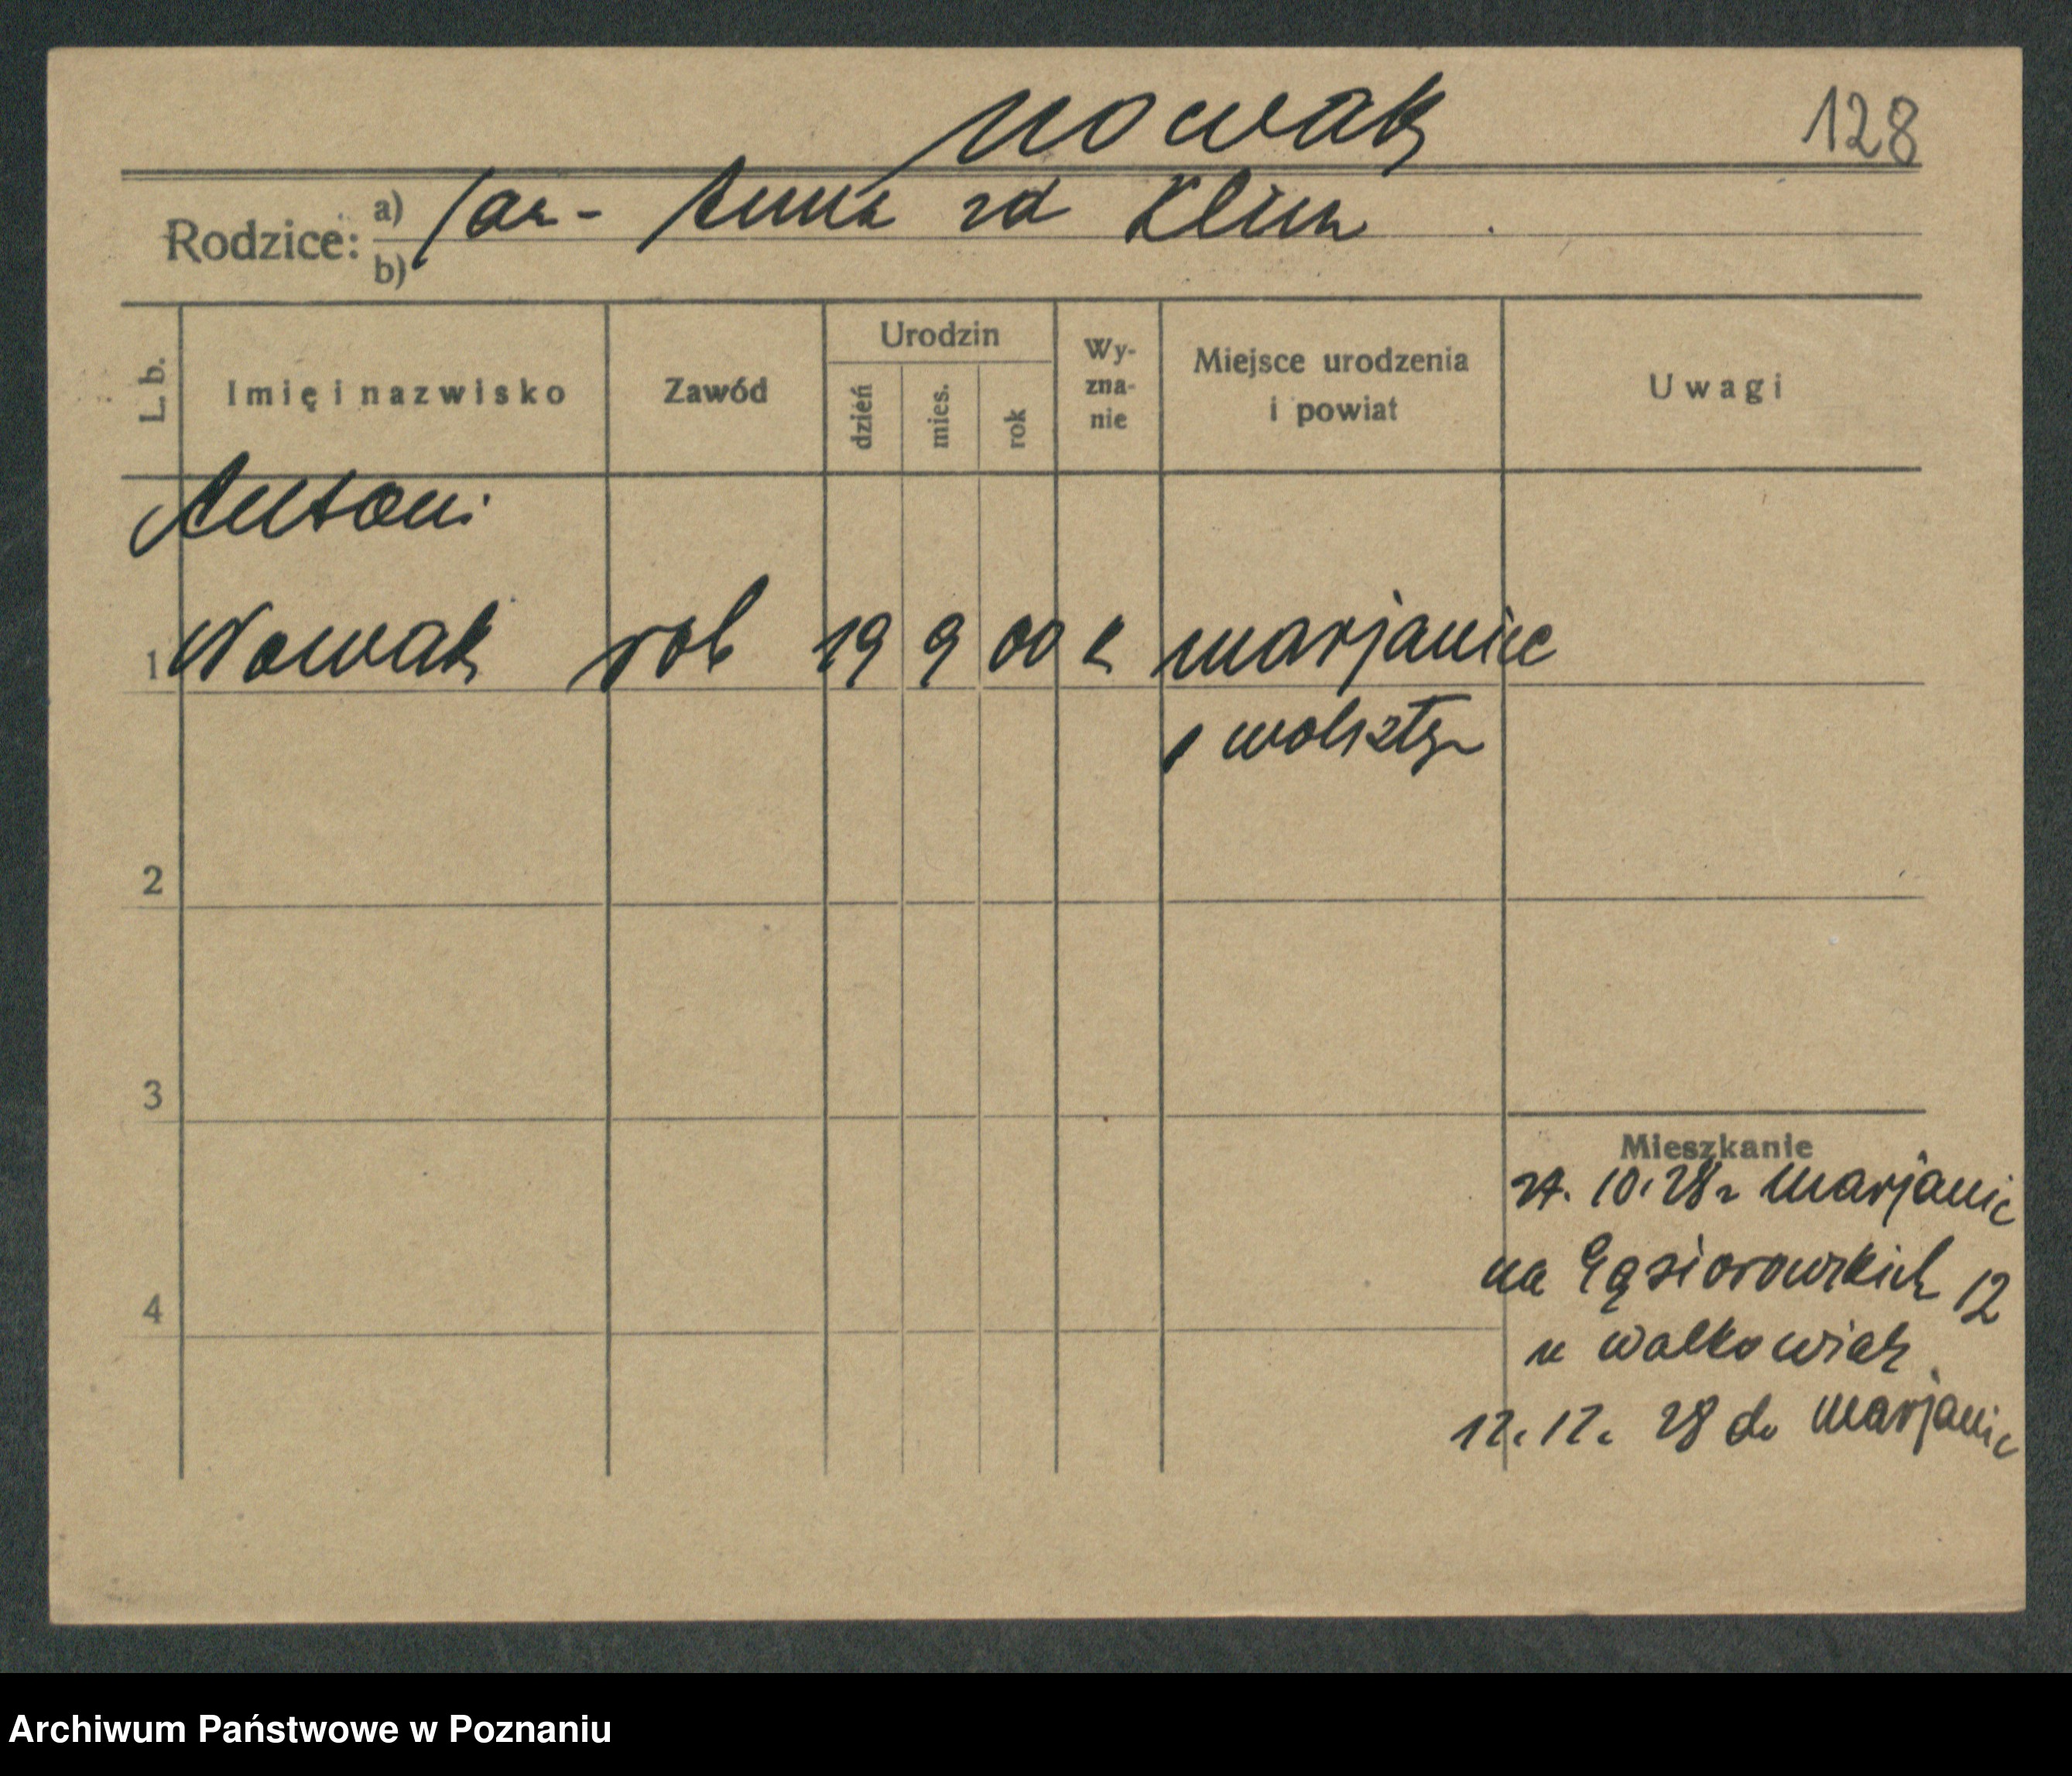 Nowak 128
Rodzice: a) Jan - Anna zd Klim
b)
L. b. Imię i nazwisko Zawód Urodzin dzień mies. rok Wy-zna-nie Miejsce urodzenia i powiat Uwagi
Antoni
1 Nowak rob 19 9 00 k Marjanic
p wolszty
2
3
Mieszkanie
10.28 r Marjanic
na Gąsiorowskich 12
4
u Walkowiak
12.12. 28 do Marjanic
Archiwum Państwowe w Poznaniu